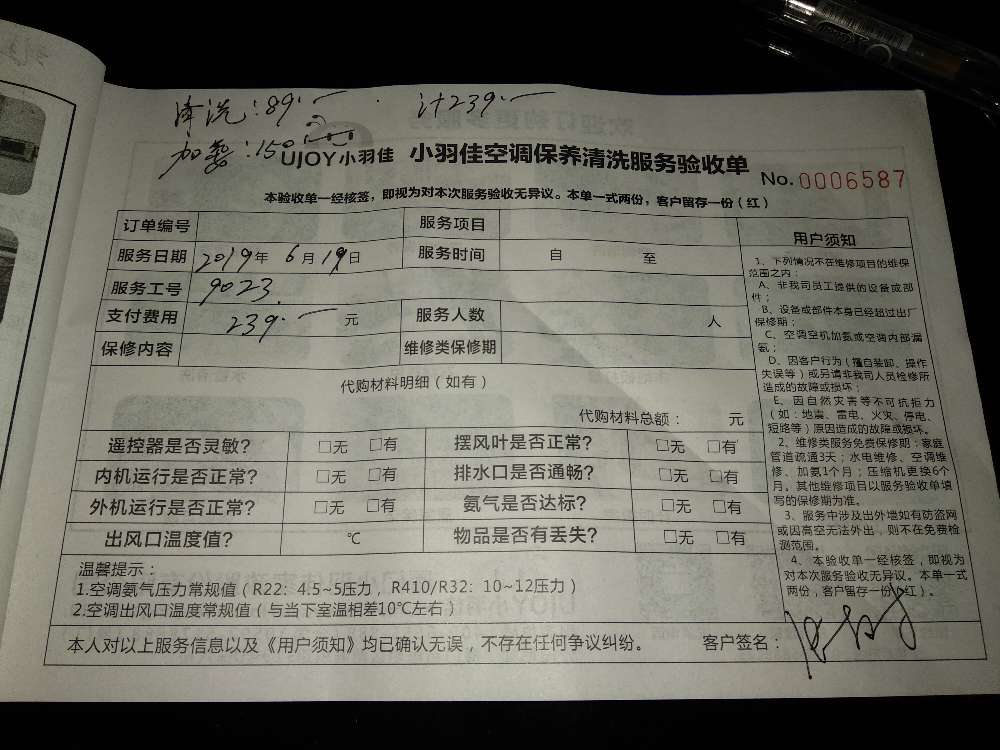 清洗:89.— 计239.—
加氨:150
UJOY小羽佳 小羽佳空调保养清洗服务验收单
No.0006587
本验收单一经核签，即视为对本次服务验收无异议。本单一式两份，客户留存一份（红）
订单编号 服务项目
服务日期 2019年 6月19日 服务时间 自 至
服务工号 9023
支付费用 239.— 元 服务人数 人
保修内容 维修类保修期
代购材料明细（如有）
代购材料总额： 元
遥控器是否灵敏？ □无 □有 摆风叶是否正常？ □无 □有
内机运行是否正常？ □无 □有 排水口是否通畅？ □无 □有
外机运行是否正常？ □无 □有 氨气是否达标？ □无 □有
出风口温度值？ ℃ 物品是否有丢失？ □无 □有
温馨提示：
1.空调氨气压力常规值（R22：4.5~5压力，R410/R32：10~12压力）
2.空调出风口温度常规值（与当下室温相差10℃左右）
本人对以上服务信息以及《用户须知》均已确认无误，不存在任何争议纠纷。 客户签名：
用户须知
1、下列情况不在维修项目的维保
范围之内：
A、非我司员工提供的设备或部
件；
B、设备或部件本身已经超过出厂
保修期；
C、空调空机加氨或空调内部漏
氨；
D、因客户行为（擅自装卸、操作
失误等）或另请非我司人员检修所
造成的故障或损坏；
E、因自然灾害等不可抗拒力
（如：地震、雷电、火灾、停电、
短路等）原因造成的故障或损坏。
2、维修类服务免费保修期：家庭
管道疏通3天；水电维修、空调维
修、加氨1个月；压缩机更换6个
月。其他维修项目以服务验收单填
写的保修期为准。
3、服务中涉及出外墙如有防盗网
或因高空无法外出，则不在免费检
测范围。
4、本验收单一经核签，即视为
对本次服务验收无异议。本单一式
两份，客户留存一份（红）。